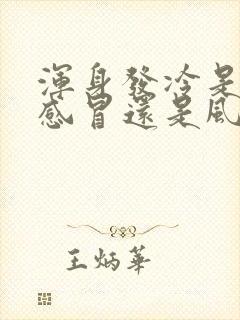 渾身發冷是
感冒還是風
王炳華